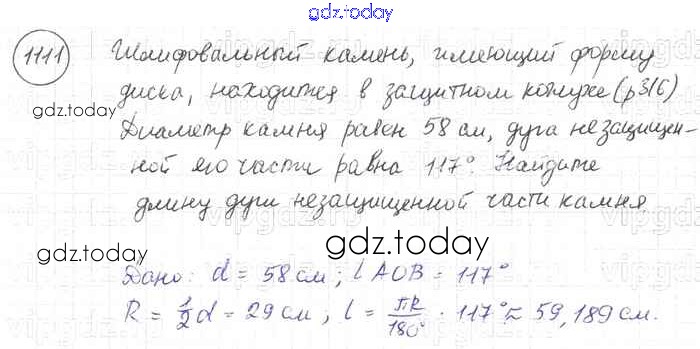 gdz.today
1111 Шлифовальный камень, имеющий форму
диска, находится в защитном кожухе (р316)
gdz.today
Диаметр камня равен 58 см, дуга незащищен-
ной его части равна 117°. Найдите
длину дуги незащищенной части камня
gdz.today
gdz.today
Дано: d = 58 см; ∠ AOB = 117°
R = 1/2 d = 29 см; l = πR/180° · 117° ≈ 59,189 см.